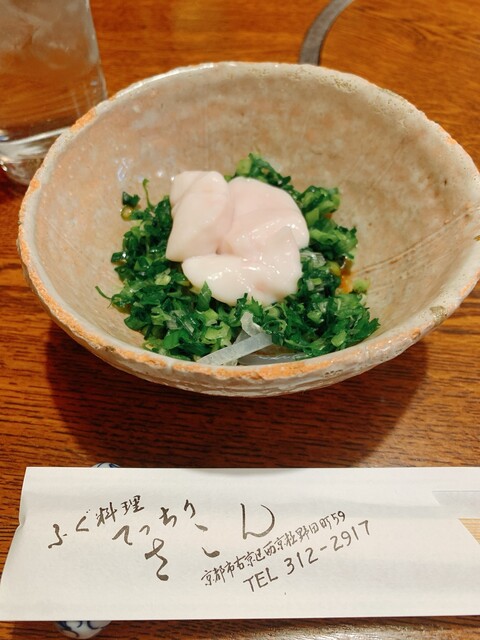 ふぐ料理
てっちり
さこん
京都市右京区西京極野田町59
TEL 312-2917